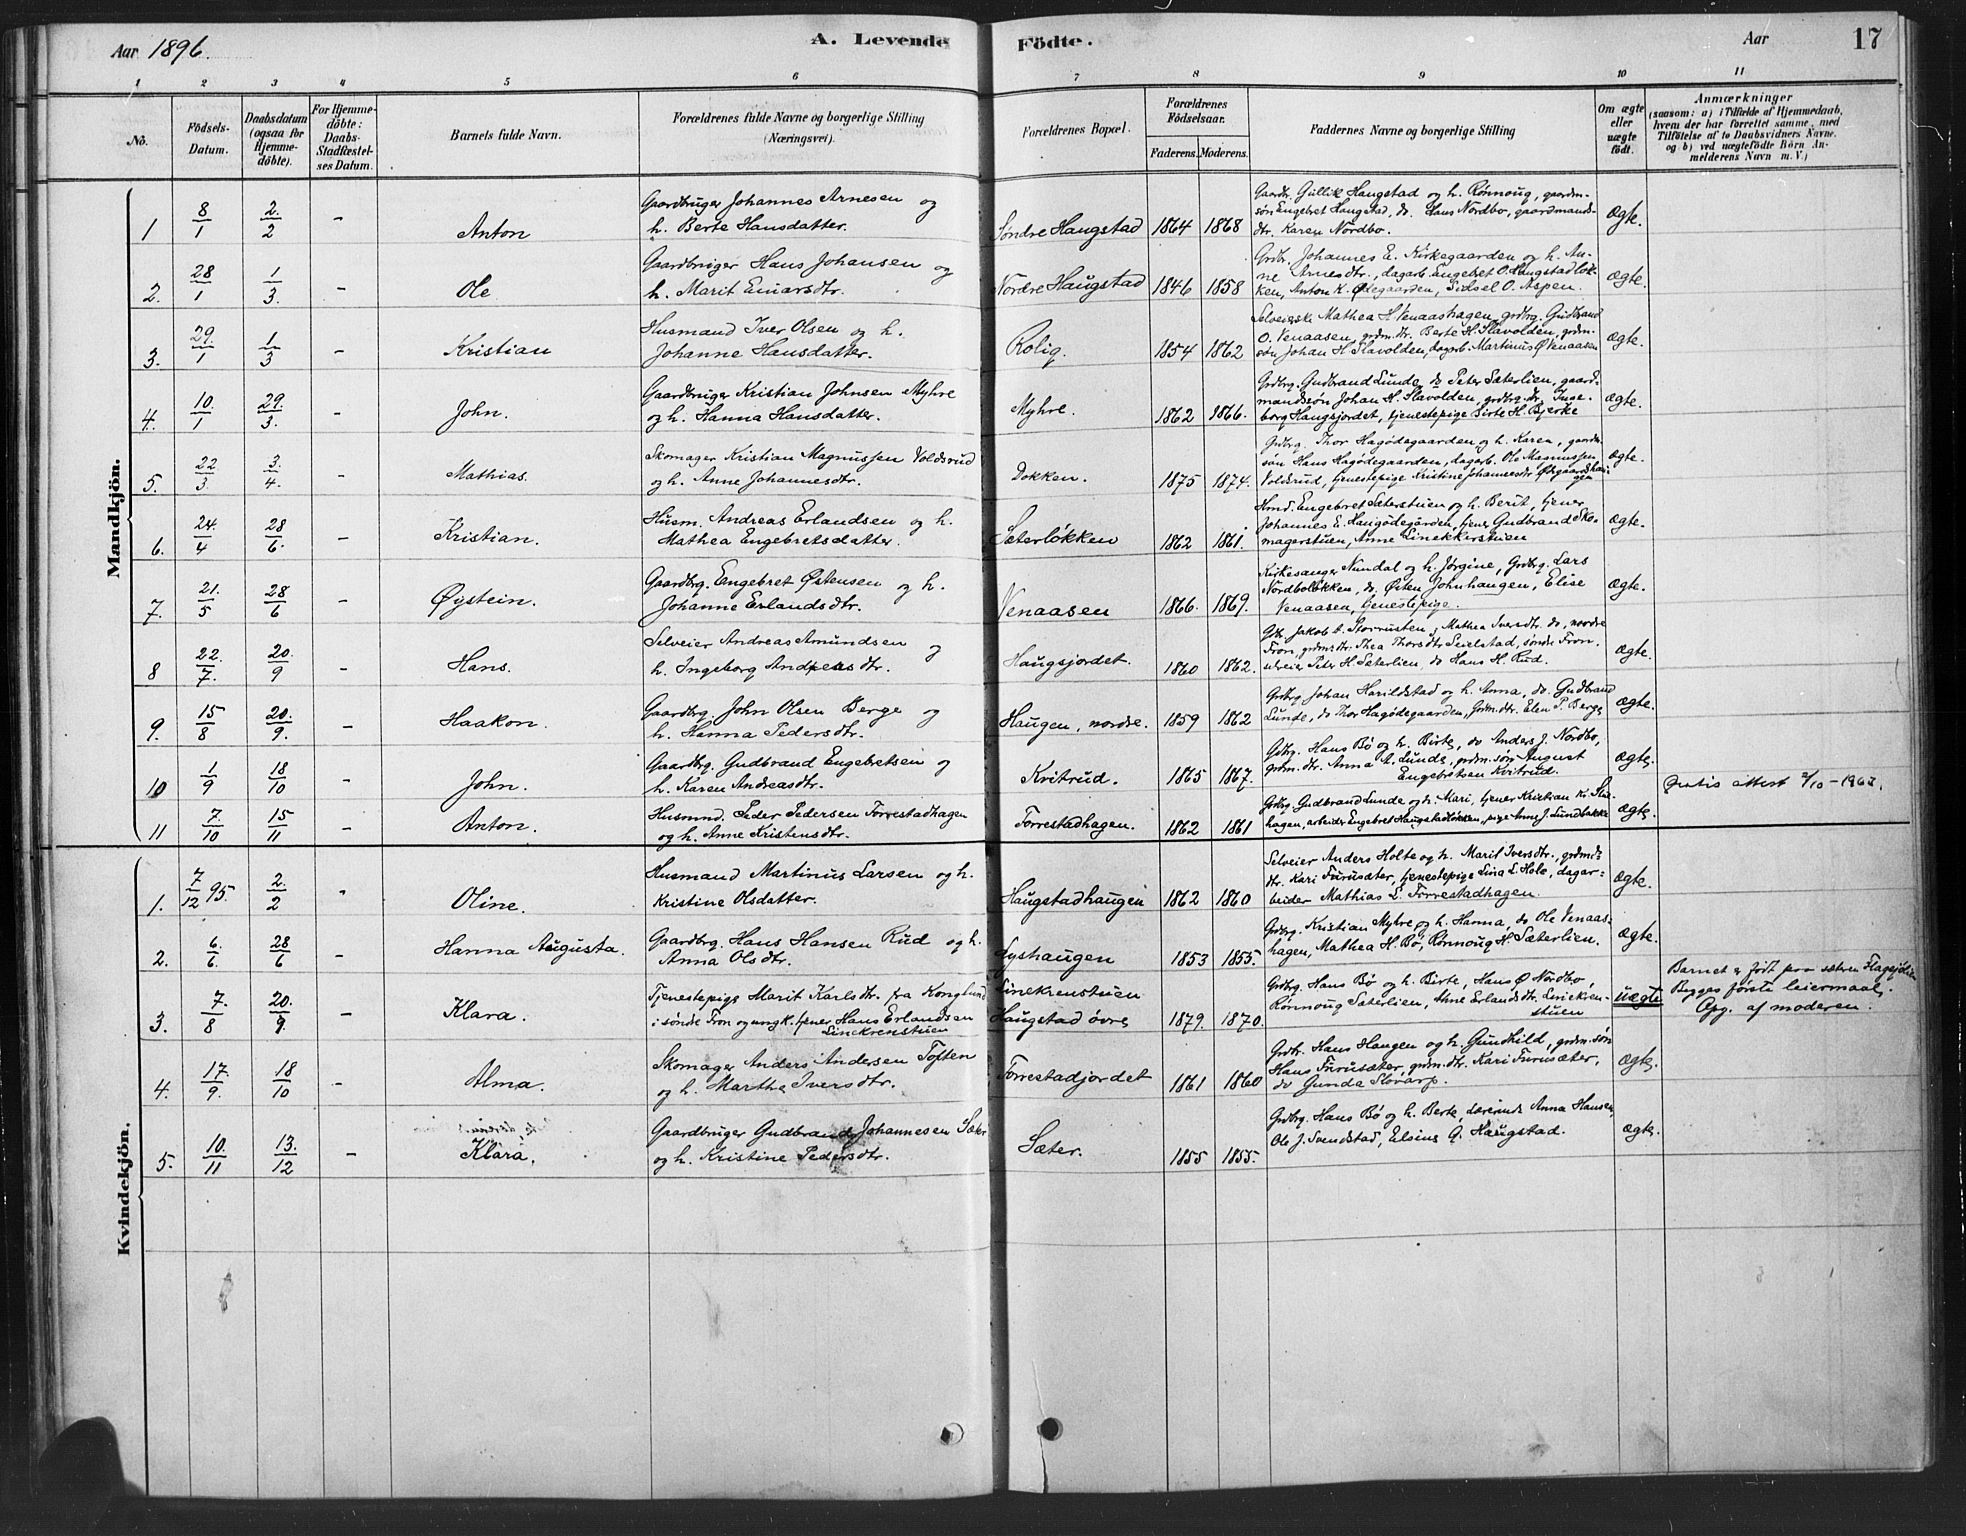 Aar 1896.
A. Levende Födte.
Aar
17
1 2 3 4 5 6 7 8 9 10 11
No.
Födsels-
Datum.
Daabsdatum
(ogsaa for
Hjemme-
döbte).
For Hjemme-
döbte:
Daabs-
Stadfæstel-
ses Datum.
Barnets fulde Navn.
Forældrenes fulde Navne og borgerlige Stilling
(Næringsvei).
Forældrenes Bopæl.
Forældrenes
Födselsaar.
Faderens. Moderens.
Faddernes Navne og borgerlige Stilling
Om ægte
eller
uægte
født.
Anmærkninger
(saasom: a) i Tilfælde af Hjemmedaab,
hvem der har forrettet samme, med
Tilföielse af to Daabsvidners Navne.
og b) ved uægtefödte Börn An-
melderens Navn m. V.)
Mandkjön.
1 8/1 2/2 - Anton
Gaardbruger Johannes Arnesen og
h. Berte Hansdatter.
Søndre Haugstad 1864 1868
Gaardbr. Gullik Haugstad og h. Rønnoug, gaardm-
søn Engebret Haugstad, do. Hans Nordbo, gaardmands-
dtr. Karen Nordbo.
Ægte.
2. 28/1 1/3. - Ole
Gaardbruger Hans Johansen og
h. Marit Einarsdtr.
Nordre Haugstad 1846 1858
Grdbr. Johannes E. Kirkegaarden og h. An-
ne Arnesdtr., dagarb. Engebret O. Haugstadløk-
ken, Anton K. Ødegaarden, Sidsel O. Aspen.
Ægte.
3. 29./1 1/3 - Kristian
Husmand Iver Olsen og h.
Johanne Hansdatter.
Rolig. 1854 1862
Selveierske Mathea H Venaashagen, grdbrg. Gudbrand
O. Venaasen, grdm. dtr. Berte H. Slavolden, grdm-
søn Johan H. Slavolden, dagarb. Martinus Ø Venaasen
Ægte.
4. 10./1 29./3. - John.
Gaardbruger Kristian Johnsen Myhre
og h. Hanna Hansdatter.
Myhre. 1862 1866.
Grdbrg. Gudbrand Lunde, do Peter Sæterlien, gaard-
mandssøn Johan H. Slavolden, grdbrg. dtr. Inge-
borg Haugsjordet, tjenestepige Birte H. Bjerke
Ægte.
5. 22/3. 3./4. - Mathias.
Skomager Kristian Magnussen Voldsrud
og h. Anne Johannesdtr.
Dokken. 1875 1874.
Grdbrg. Thor Hagødegaarden og h. Karen, gaardm.
søn Hans Hagødegaarden, dagarb. Ole Magnussen
Voldsrud, tjenestepige Kristine Johannesdtr
Ægte.
6. 24./4 28/6. - Kristian.
Husm. Andreas Erlandsen og h.
Mathea Engebretsdatter.
Sæterløkken 1862 1861.
Hmd. Engebret Sæterstuen og h. Berit, tjener
Johannes E. Haugødegarden, tjener Gudbrand Sko-
magerstuen, Anne Linekkerstuen
Ægte.
7. 21./5 28/6 - Øystein.
Gaardbrg. Engebret Østensen og h.
Johanne Erlandsdtr.
Venaasen 1866. 1869.
Kirkesanger Nundal og h. Jørgine, Grdbrg. Lars
Nordboløkken, do. Østen Johnhaugen, Elise
Venaasen, tjenestepige.
Ægte.
8 22./7. 20./9 - Hans.
Selveier Andreas Amundsen og
h. Ingeborg Andreasdtr.
Haugsjordet. 1860 1862.
Jakob E. Storrusten, Mathea Iversdtr. do, nordre
Fron, grdmdtr. Thea Thorsdtr Seielstad, søndre Fron,
selveier Peter H. Sæterlien, do Hans H. Rud.
Ægte.
9. 15/8 20./9. - Haakon.
Gaardbrg. John Olsen Berge og
h. Hanna Pedersdtr.
Haugen, nordre. 1859 1862
Grdbrg. Johan Harildstad og h. Anna, do. Gudbrand
Lunde, do Thor Hagødegaarden, Grdm.dtr. Elen P. Berge
Ægte.
10 1/9 18/10 - John.
Gaardbrg. Gudbrand Engebretsen og
h. Karen Andreasdtr.
Kvitrud. 1865 1867.
Grdbrg. Hans Bø og h. Birte, do Anders J. Nordbo,
grdm. dtr. Anna A. Lunde, grdm. søn August
Engebretsen Kvitrud.
Ægte.
Gratis attest 2/10-1963.
11 7/10 15/11 - Anton.
Husmnd. Peder Pedersen Forrestadhagen
og h. Anne Kristensdtr.
Forrestadhagen. 1862 1861
Grdbrg. Gudbrand Lunde og h. Mari, tjener Kristian Kr. Stu-
hagen, arbeider Engebret Haugstadløkken, pige Anne J. Lundbakke
Ægte.
Kvindekjön.
1. 7/12 95. 2./2 - Oline.
Husmand Martinus Larsen og h.
Kristine Olsdatter.
Haugstadhaugen 1862 1860
Selveier Anders Holte og h. Marit Iversdtr., grdmds
dtr. Kari Furusæter, tjenestepige Lina L. Hole, dagar-
beider Mathias L. Forrestadhagen.
Ægte.
2. 6./6. 28/6 - Hanna Augusta.
Gaardbrg. Hans Hansen Rud og h.
Anna Olsdtr.
Lyshaugen 1853 1855.
Grdbrg. Kristian Myhre og h. Hanna, do Ole Venaas-
hagen, Mathea H. Bø, Rønnoug H. Sæterlien.
Ægte.
3. 7./8 20./9. - Klara.
Tjenestepige Marit Karlsdtr. fra Konglund
i søndre Fron og ungk. tjener Hans Erlandsen
Linekrenstuen
Linekrenstuen
Haugstad øvre 1879. 1870.
Grdbrg. Hans Bø og h. Birte, Hans Ø Nordbo,
Rønnoug Sæterlien, Anne Erlandsdtr. Linekren-
stuen
Uægte
Barnet er født paa sæteren
Begges første leiermaal.
Opg. af moderen.
4. 17./9. 18/10 - Alma.
Skomager Anders Andersen Toften
og h. Marthe Iversdtr.
Forrestadjordet 1861 1860
Grdbr. Hans Haugen og h. Gunhild, grdm. søn
Hans Furusæter, grdm. dtr. Kari Furusæter,
do Gunda Slovarp.
Ægte.
5. 10./11 13./12 - Klara.
Gaardbruger Gudbrand Johannesen Sæter
og h. Kristine Pedersdtr.
Sæter. 1855 1855.
Grdbrg. Hans Bø og h. Berte, lærerinde Anna Hansen,
Ole J. Svendstad, Elsine G. Haugstad.
Ægte.